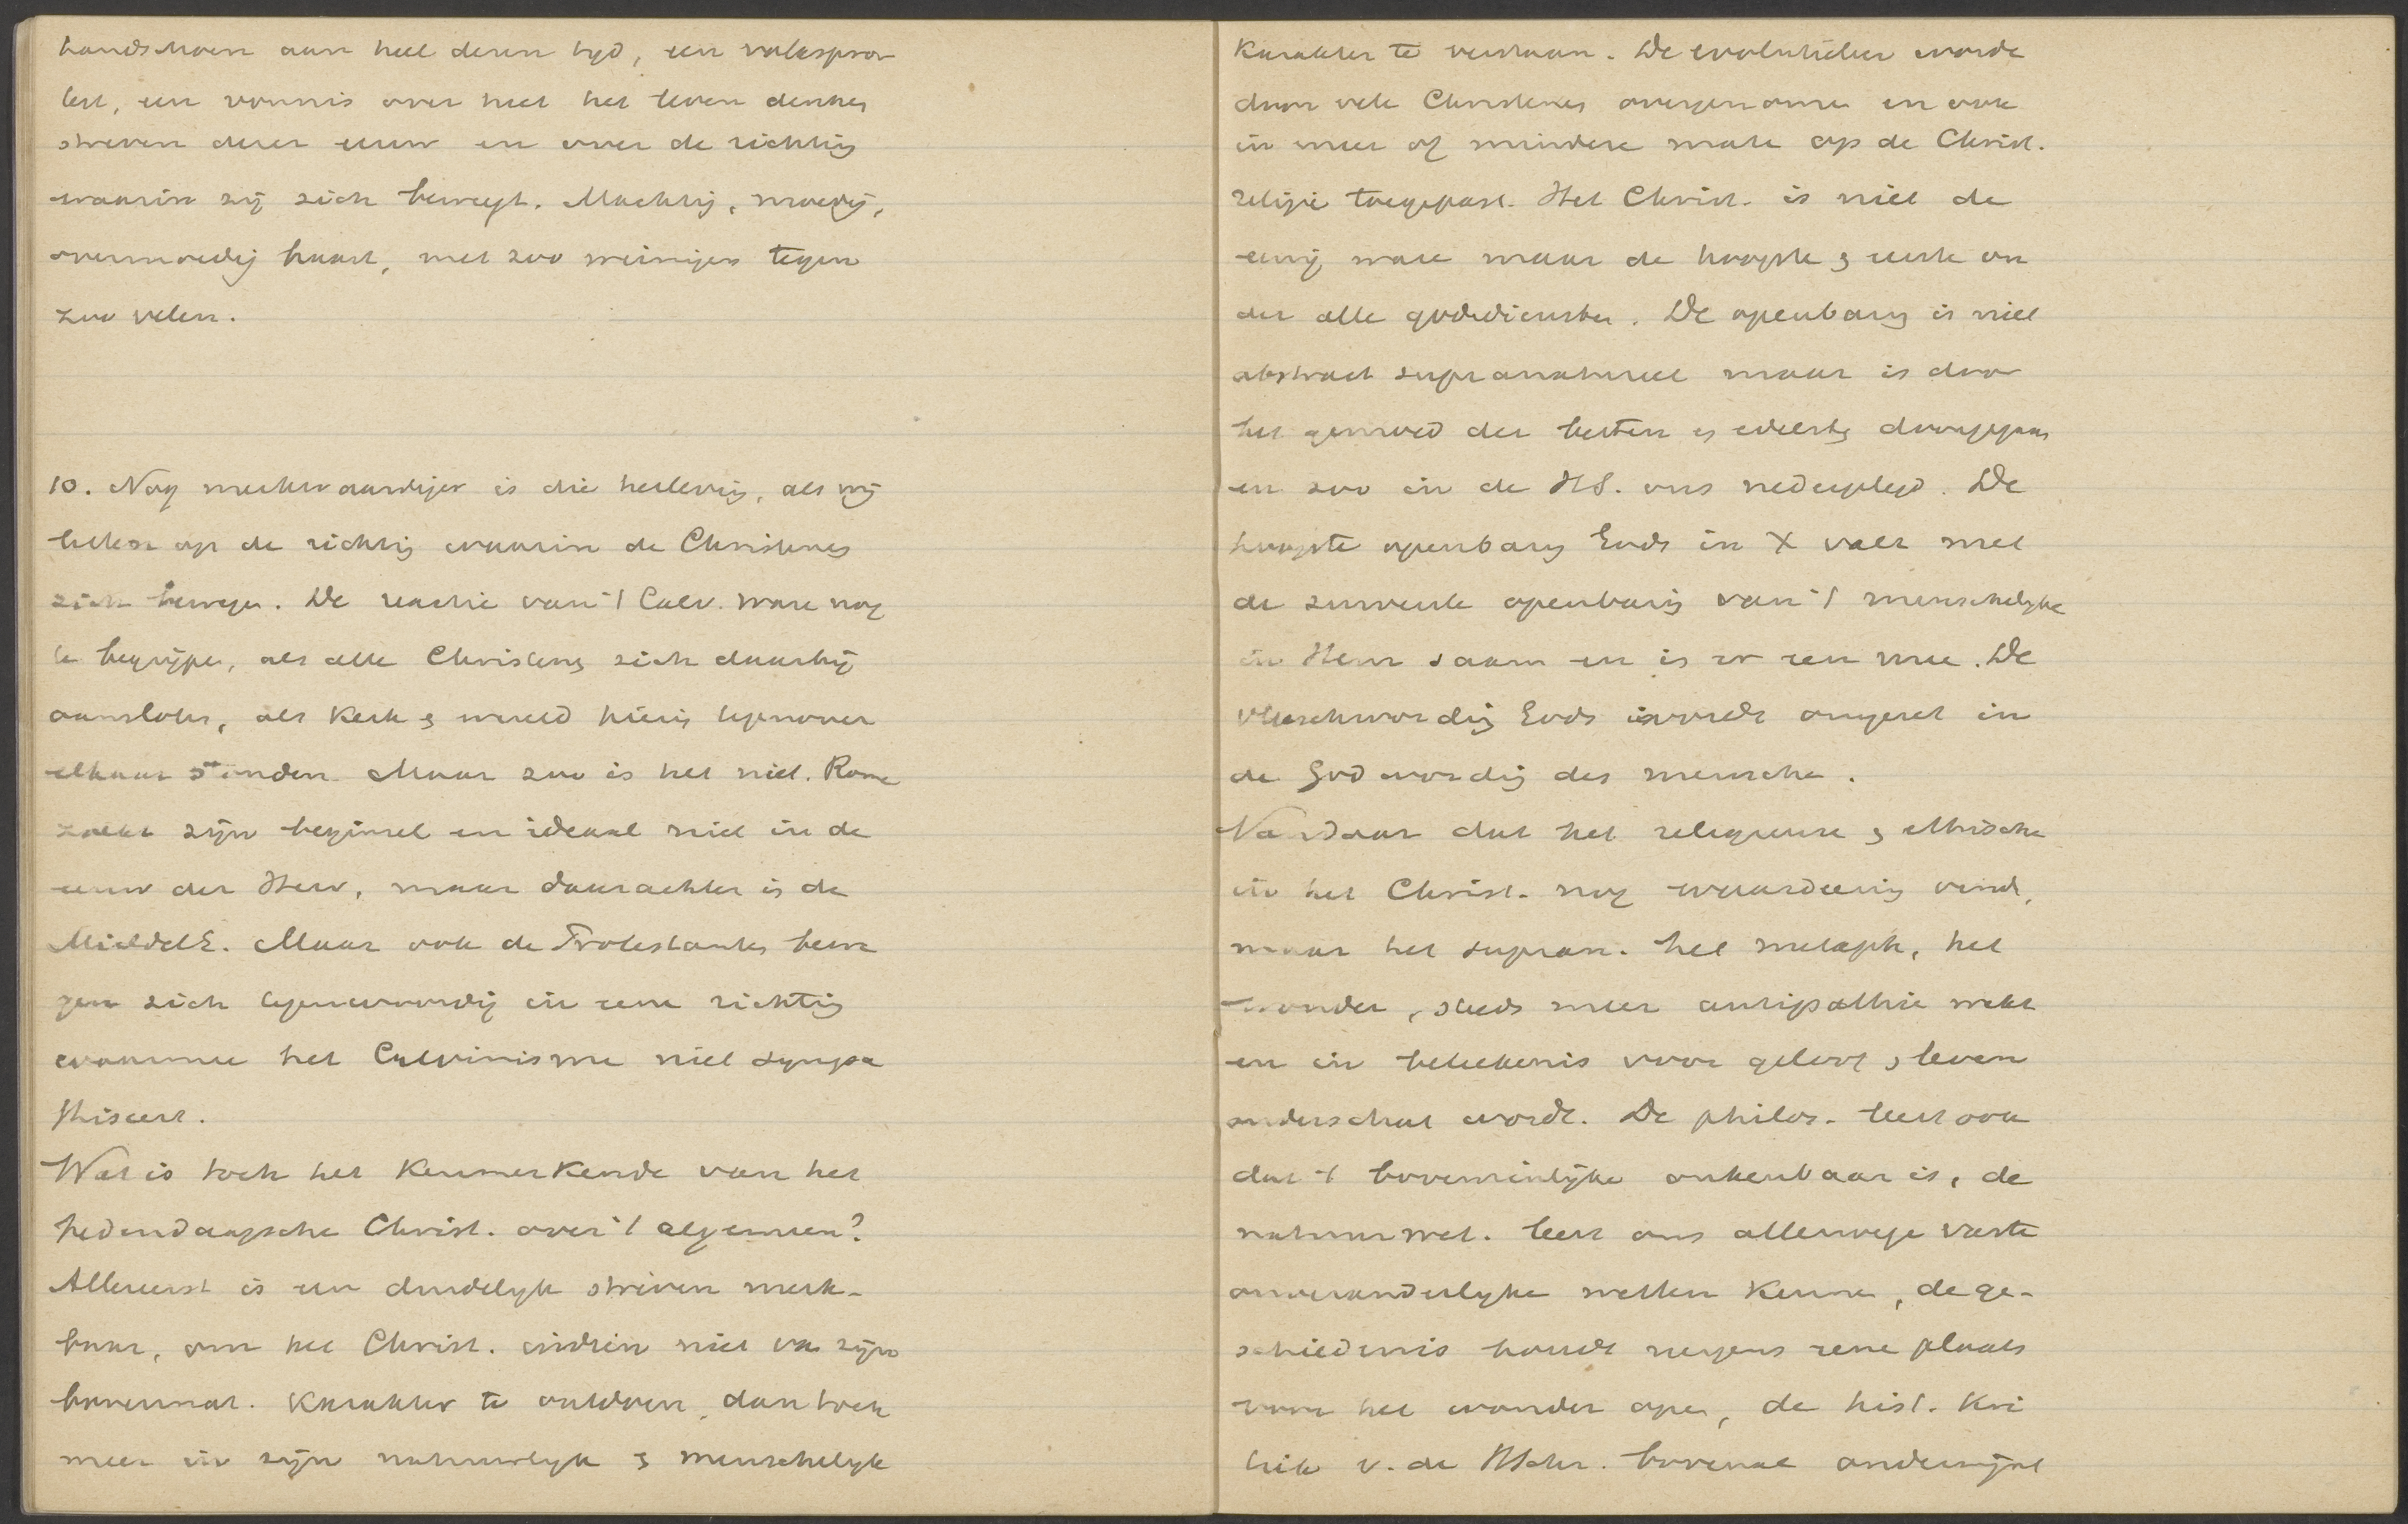 handschoen aan heel deren tijd, een volksprov
lest, een vonnis over heel het leven denken
streven dezer eeuw en over de richting
waarin zij zich beweegt. Machtig, moedig,
overmoedig haast, met zoo weinigen tegen
zoo velen.
10. Nog merkwaardiger is die herleving, als wij
letten op de richting waarin de Christenen
zich bewegen. De reactie van 't Calv. ware nog
te begrijpen, als alle Christenen zich daarbij
aansloten, als Kerk & wereld hierin tegenover
elkaar stonden. Maar zoo is het niet. Rome
zoekt zijn beginsel en ideaal niet in de
eeuw der Herv, maar daarachter in de
MiddelE. Maar ook de Protestanten bewe
gen zich tegenwoordig in eene richting
waarmee het Calvinisme niet sympa
thiseert.
Wat is toch het Kenmerkende van het
hedendaagsche Christ. over 't algemeen?
Allereerst is een duidelijk streven merk-
baar, om het Christ. indien niet van zijn
bovennat. Karakter te ontdoen, dan toch
meer in zijn natuurlijk & menschelijk
Karakter te verstaan. De evolutieleer wordt
door vele Christenen overgenomen en ook
in meer of mindere mate op de Christ.
religie toegepast. Het Christ. is niet de
eenig ware maar de hoogste & eerste on
der alle godsdiensten. De openbaring is niet
abstract supranatureel maar is door
het gemoed der besten en edelste doorgegaan
en zoo in de HS. ons nedergelegd. De
hoogste openbaring Gods in X valt met
de zuiverste openbaring van 't menschelijke
in Hem saam en is er een mee. De
vleeschwording Gods wordt omgezet in
de Godwording des menschen.
Vandaar dat het religieuse & ethische
in het Christ. nog waardeering vindt,
maar het supran. het metaph, het
wonder, steeds meer antipathie wekt
en in beteekenis voor geloof & leven
onderschat wordt. De philos. leert ook
dat 't bovenzinlijke onkenbaar is, de
natuurwet. leert ons allerwege vaste
onveranderlijke wetten Kennen, de ge-
schiedenis houdt nergens eene plaats
voor het wonder open, de hist. Kri
tiek v. de Schr. bovenal ondermijnt